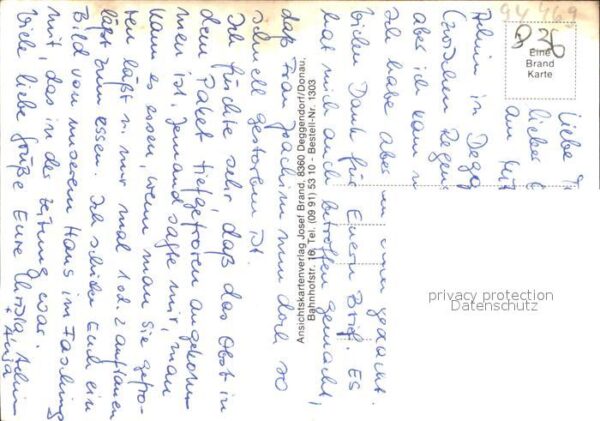 Liebe
liebes
am
Achim in Degg
(zwischen Regens
aber ich kam n
Ich habe aber an euch gedacht.
Vielen Dank für Euern Brief. Es
hat mich auch betroffen gemacht,
daß Frau Joachim nun doch so
schnell gestorben ist.
Ich fürchte sehr, daß das Obst in
dem Paket tiefgefroren angekom-
men ist. Jemand sagte mir, man
kann es essen, wenn man sie gefro-
ren läßt u. nur mal 1 od. 2 auftauen
läßt zum essen. Ich schicke Euch ein
Bild von unserem Haus im Fasching
mit, das in der Zeitung war.
Viele liebe Grüße Eure Achim
+ Anja
Ansichtskartenverlag Josef Brand, 8360 Deggendorf/Donau,
Bahnhofstr. 16, Tel. (09 91) 53 10 - Bestell-Nr. 1303
94469
B26
Eine
Brand
Karte
privacy protection
Datenschutz